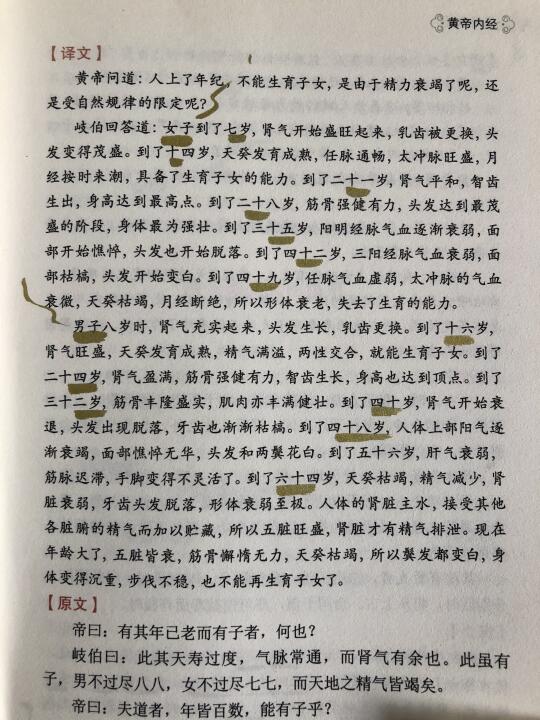 黄帝内经
【译文】
黄帝问道：人上了年纪，不能生育子女，是由于精力衰竭了呢，还
是受自然规律的限定呢？
岐伯回答道：女子到了七岁，肾气开始盛旺起来，乳齿被更换，头
发变得茂盛。到了十四岁，天癸发育成熟，任脉通畅，太冲脉旺盛，月
经按时来潮，具备了生育子女的能力。到了二十一岁，肾气平和，智齿
生出，身高达到最高点。到了二十八岁，筋骨强健有力，头发达到最茂
盛的阶段，身体最为强壮。到了三十五岁，阳明经脉气血逐渐衰弱，面
部开始憔悴，头发也开始脱落。到了四十二岁，三阳经脉气血衰弱，面
部枯槁，头发开始变白。到了四十九岁，任脉气血虚弱，太冲脉的气血
衰微，天癸枯竭，月经断绝，所以形体衰老，失去了生育的能力。
男子八岁时，肾气充实起来，头发生长，乳齿更换。到了十六岁，
肾气旺盛，天癸发育成熟，精气满溢，两性交合，就能生育子女。到了
二十四岁，肾气盈满，筋骨强健有力，智齿生长，身高也达到顶点。到了
三十二岁，筋骨丰隆盛实，肌肉亦丰满健壮。到了四十岁，肾气开始衰
退，头发出现脱落，牙齿也渐渐枯槁。到了四十八岁，人体上部阳气逐
渐衰竭，面部憔悴无华，头发和两鬓花白。到了五十六岁，肝气衰弱，
筋脉迟滞，手脚变得不灵活了。到了六十四岁，天癸枯竭，精气减少，肾
脏衰弱，牙齿头发脱落，形体衰弱至极。人体的肾脏主水，接受其他
各脏腑的精气而加以贮藏，所以五脏旺盛，肾脏才有精气排泄。现在
年龄大了，五脏皆衰，筋骨懈惰无力，天癸枯竭，所以鬓发都变白，身
体变得沉重，步伐不稳，也不能再生育子女了。
【原文】
帝曰：有其年已老而有子者，何也？
岐伯曰：此其天寿过度，气脉常通，而肾气有余也。此虽有
子，男不过尽八八，女不过尽七七，而天地之精气皆竭矣。
帝曰：夫道者，年皆百数，能有子乎？